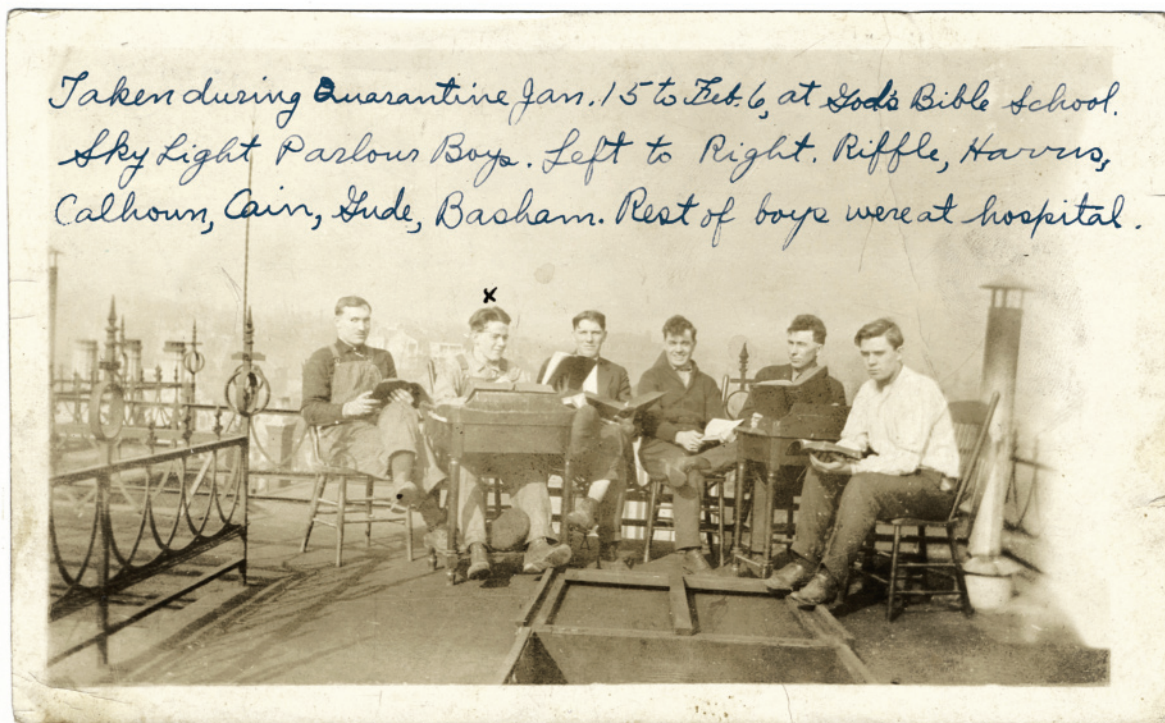 Taken during Quarantine Jan. 15 to Feb. 6, at God's Bible School.
Sky Light Parlour Boys. Left to Right. Riffle, Harvus,
Calhoun, Cain, Gude, Basham. Rest of boys were at hospital.
x